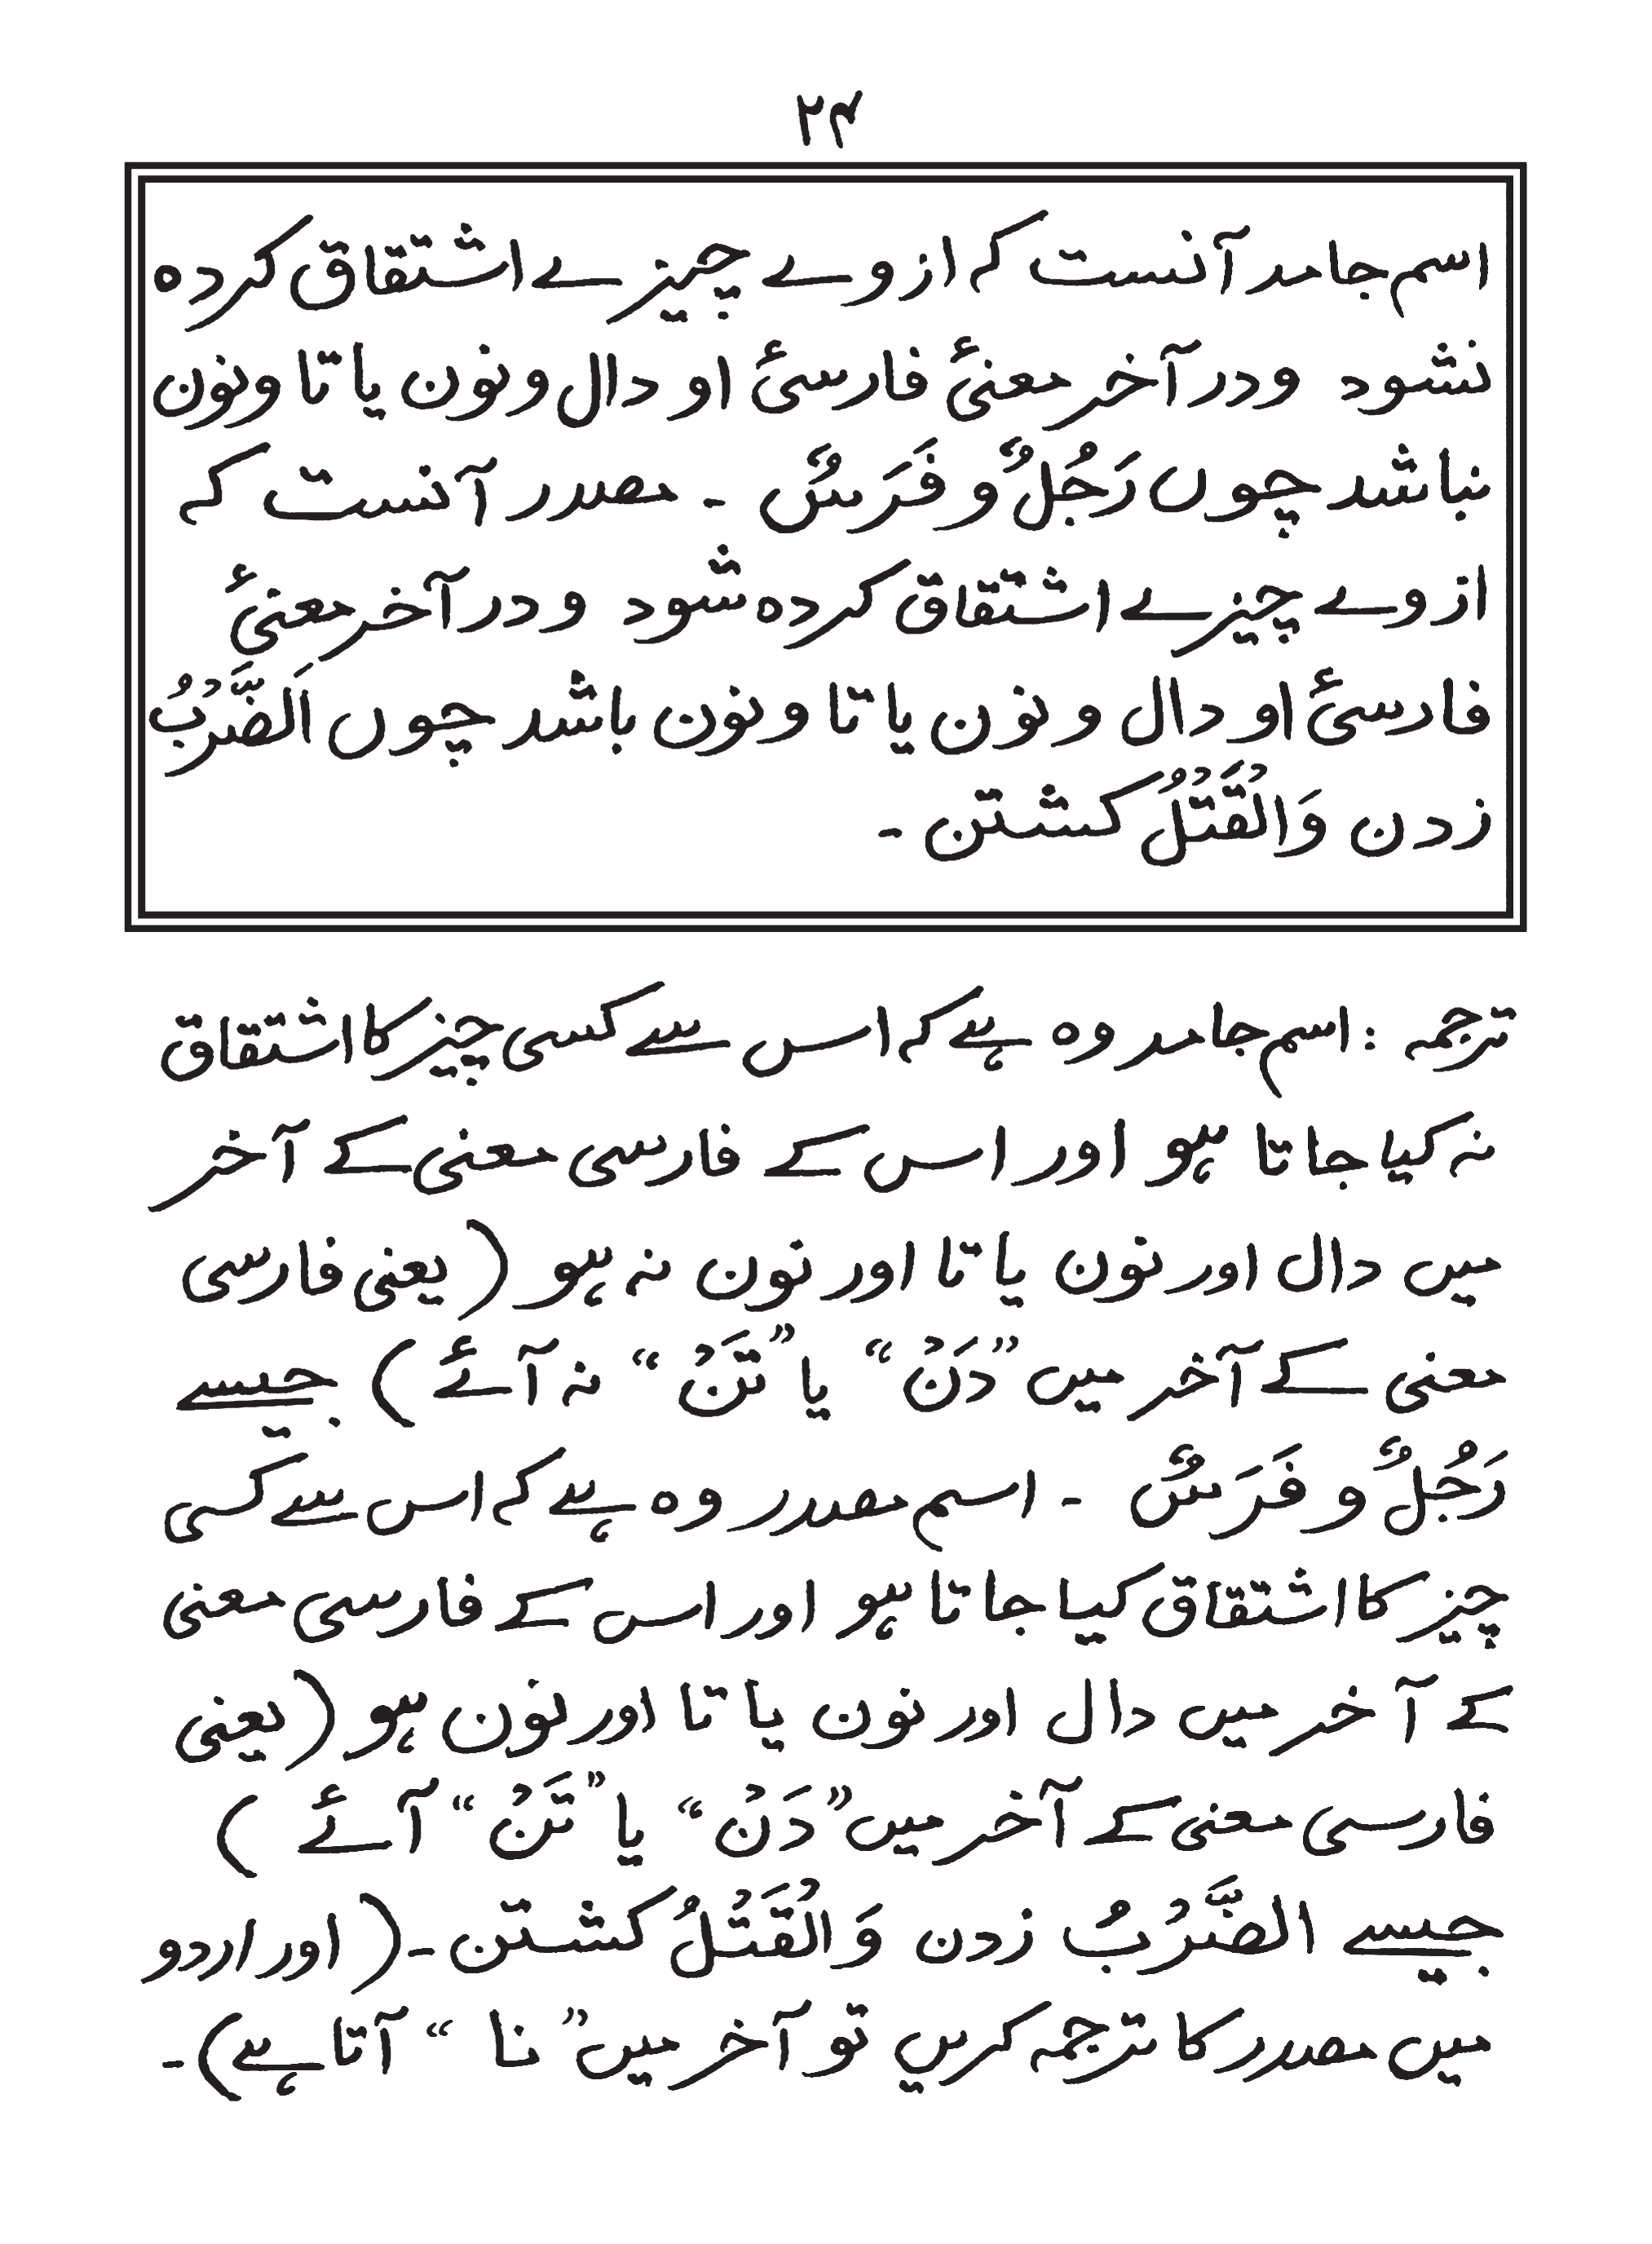 ۲۴
اسم جامد آنست کہ ازوے چیزے اشتقاق کردہ
نشود ودر آخر معنیٔ فارسیٔ او دال و نون یا تا ونون
نباشد چوں رَجُلٌ و فَرَسٌ ۔ مصدر آنست کہ
ازوے چیزے اشتقاق کردہ شود ودر آخر معنیٔ
فارسیٔ او دال و نون یا تا ونون باشد چوں اَلضَّرْبُ
زدن وَالْقَتْلُ کشتن ۔
ترجمہ : اسم جامد وہ ہے کہ اس سے کسی چیز کا اشتقاق
نہ کیا جاتا ہو اور اس کے فارسی معنی کے آخر
میں دال اور نون یا تا اور نون نہ ہو ( یعنی فارسی
معنی کے آخر میں ”دَنْ“ یا ”تَنْ“ نہ آئے ) جیسے
رَجُلٌ و فَرَسٌ ۔ اسم مصدر وہ ہے کہ اس سے کسی
چیز کا اشتقاق کیا جاتا ہو اور اس کے فارسی معنی
کے آخر میں دال اور نون یا تا اور نون ہو ( یعنی
فارسی معنی کے آخر میں ”دَنْ“ یا ”تَنْ“ آئے )
جیسے الضَّرْبُ زدن وَالْقَتْلُ کشتن ۔ ( اور اردو
میں مصدر کا ترجمہ کریں تو آخر میں ”نا“ آتا ہے) ۔